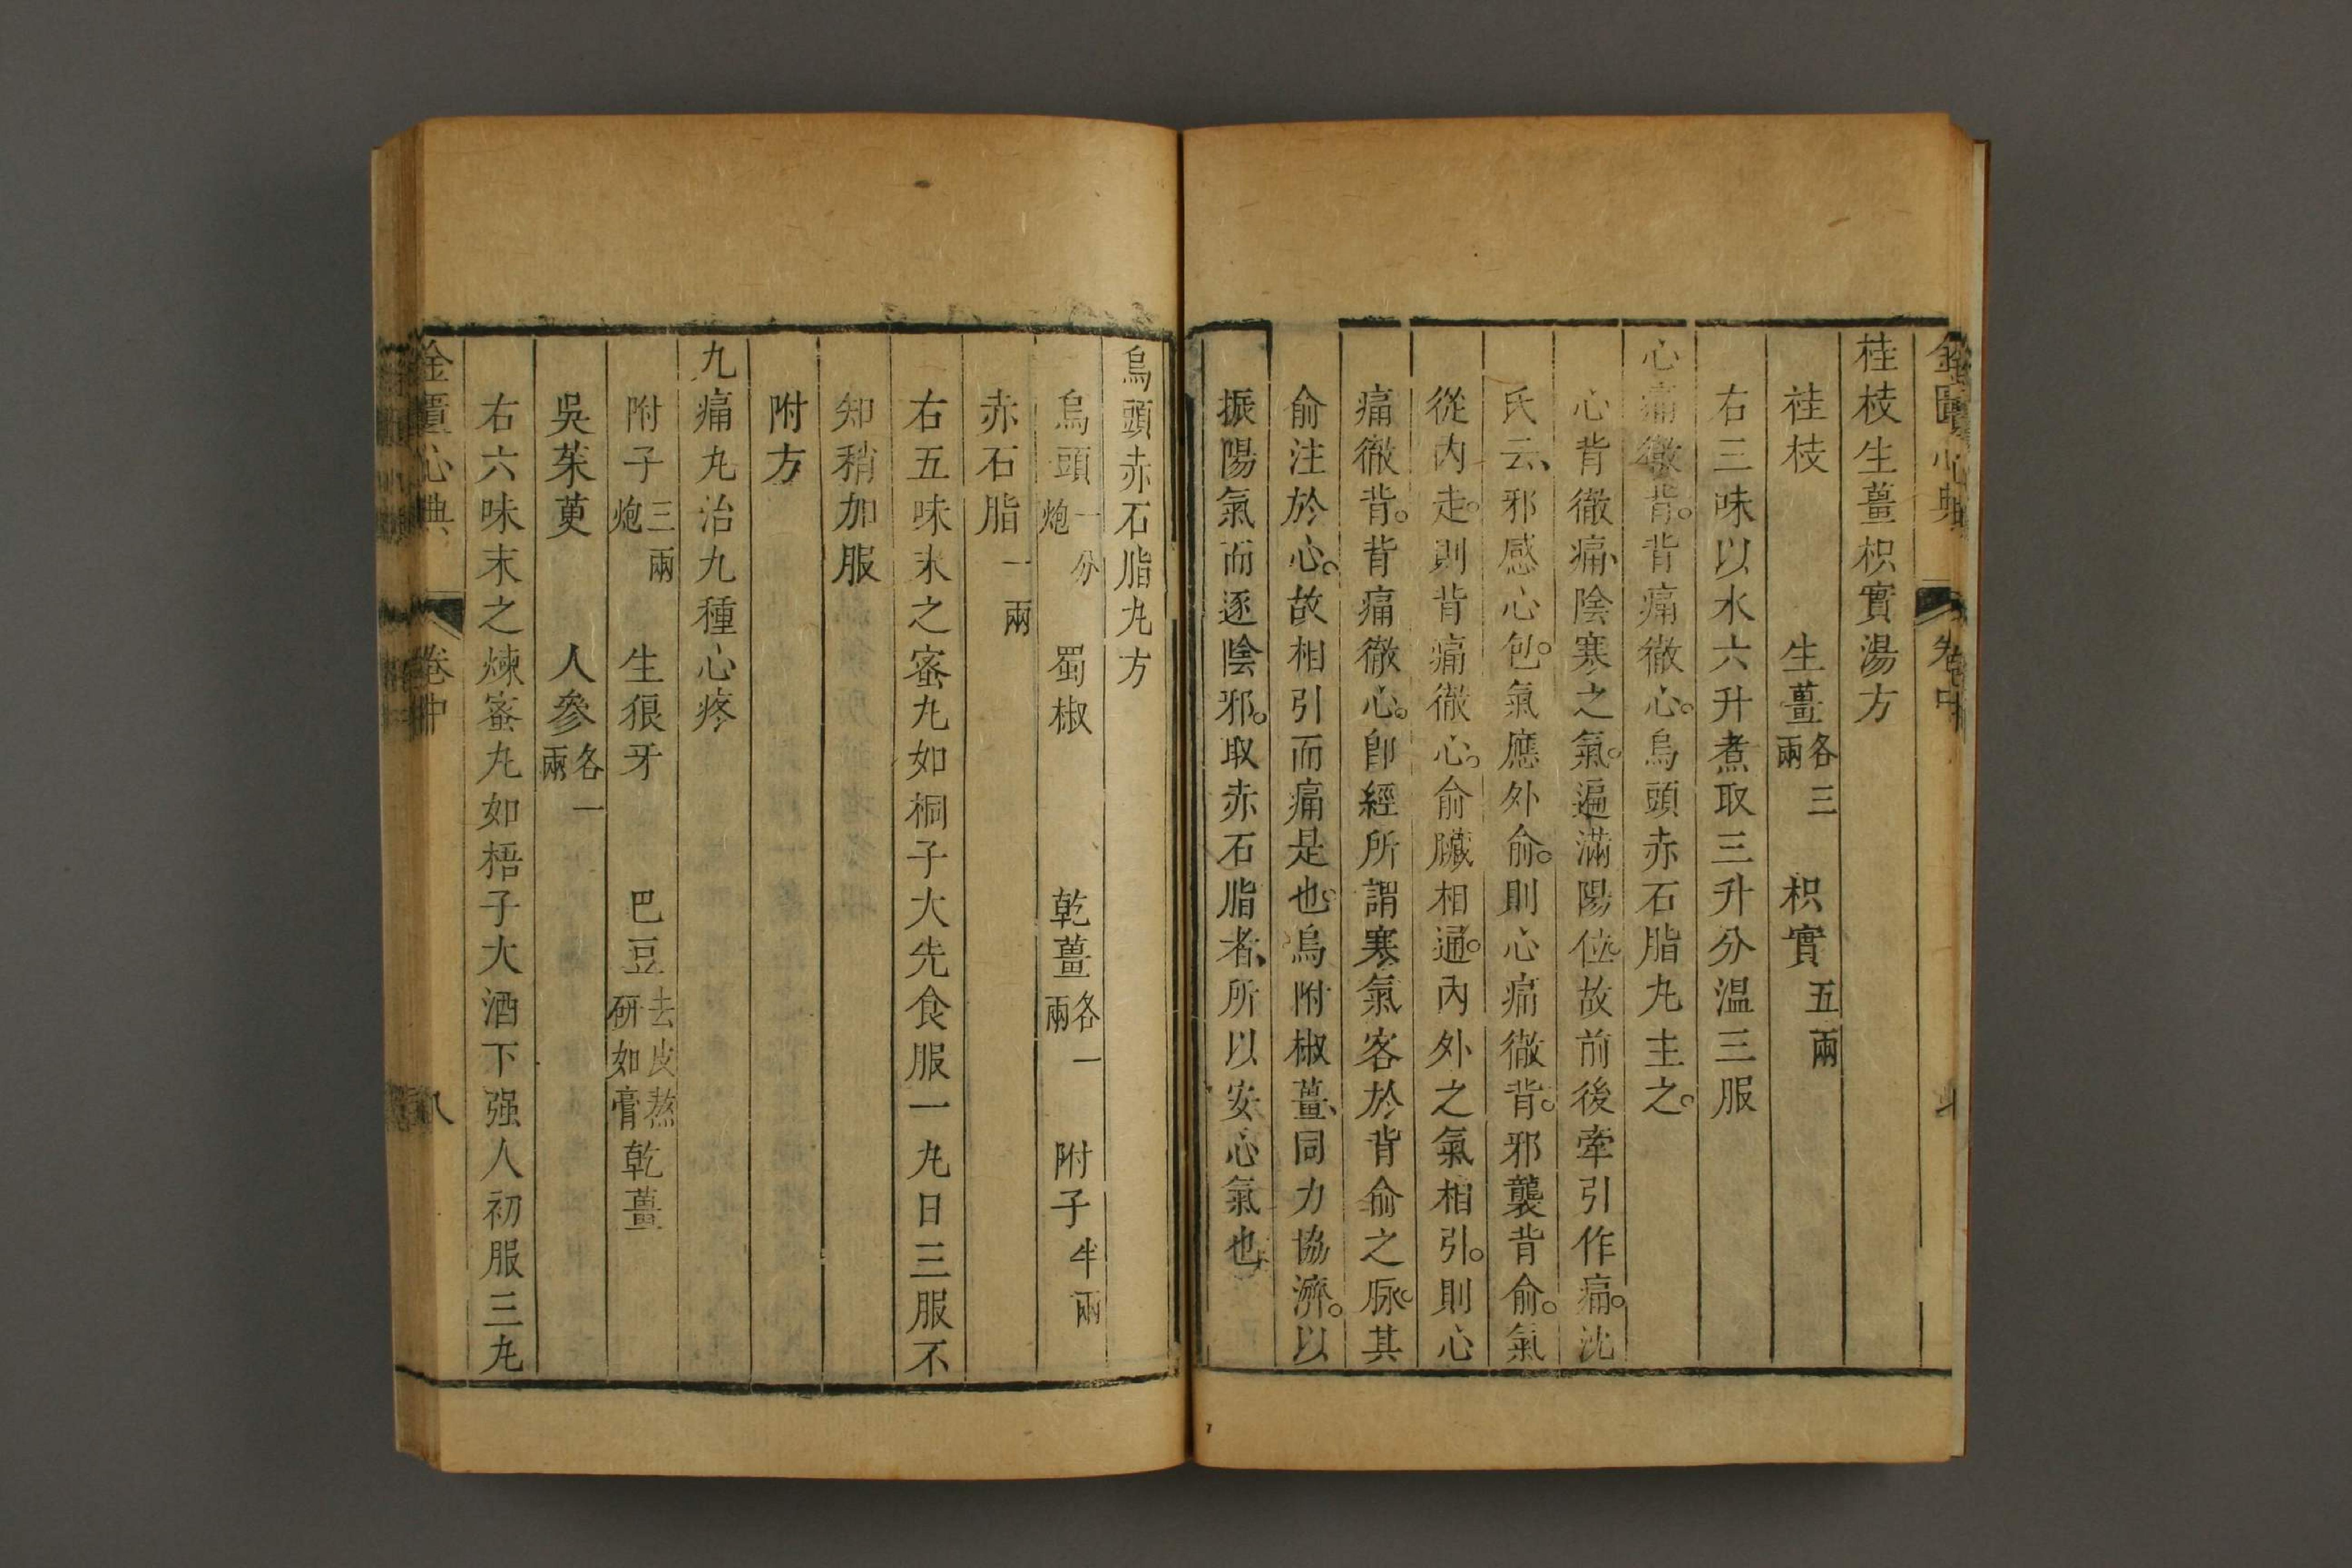 金匱心典 卷中
桂枝生薑枳實湯方
桂枝 生薑各三兩 枳實五兩
右三味以水六升煮取三升分温三服
心痛徹背。背痛徹心。烏頭赤石脂丸主之。
心背徹痛、陰寒之氣。遍滿陽位。故前後牽引作痛。沈
氏云、邪感心包。氣應外俞。則心痛徹背。邪襲背俞。氣
從內走。則背痛徹心。俞臟相通。內外之氣相引。則心
痛徹背。背痛徹心。卽經所謂寒氣客於背俞之脉。其
俞注於心。故相引而痛是也。烏附椒薑、同力協濟。以
振陽氣而逐陰邪。取赤石脂者、所以安心氣也
烏頭赤石脂丸方
烏頭一分炮 蜀椒 乾薑各一兩 附子半兩
赤石脂一兩
右五味末之蜜丸如桐子大先食服一丸日三服不
知稍加服
附方
九痛丸治九種心疼
附子三兩炮 生狼牙 巴豆去皮熬研如膏 乾薑
吳茱萸 人參各一兩
右六味末之煉蜜丸如梧子大酒下强人初服三丸
金匱心典 卷中 八